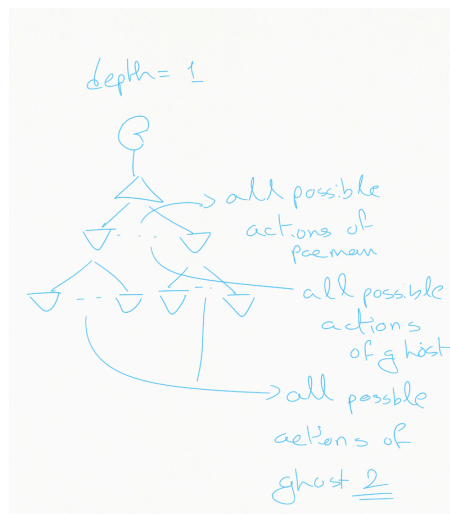 depth = 1
all possible
actions of
pacman
all possible
actions
of ghost
all possble
actions of
ghost 2